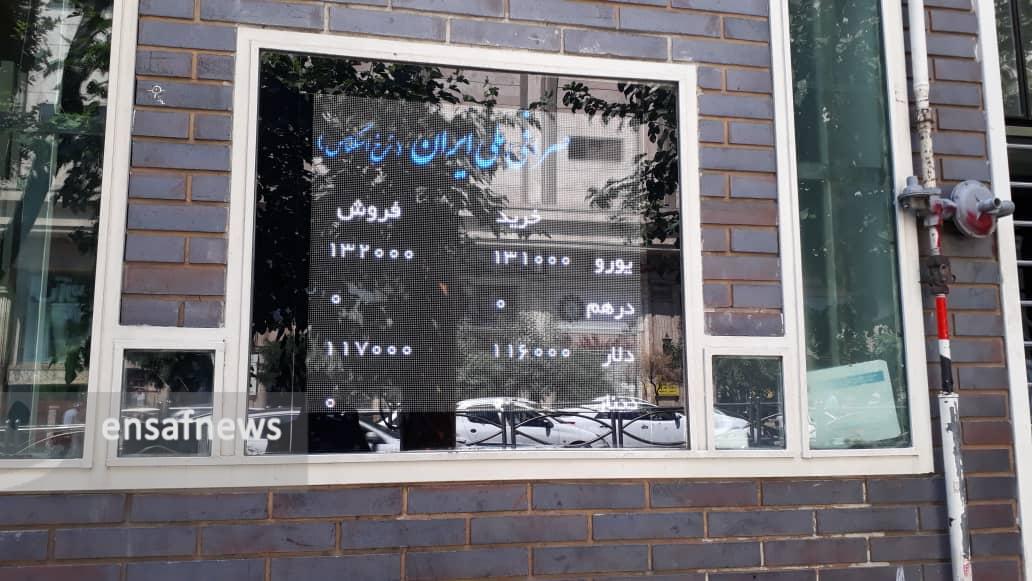 صرافی ملی ایران (نرخ اسکناس)
خرید فروش
یورو ۱۳۱۰۰۰ ۱۳۲۰۰۰
درهم ۰ ۰
دلار ۱۱۶۰۰۰ ۱۱۷۰۰۰
۰
ensafnews